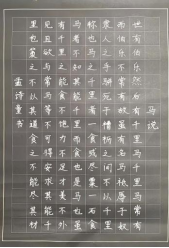 马说
世有伯乐然后有千里马千里马常有
而伯乐不常有故虽有名马祗辱于奴
隶人之手骈死于槽枥之间不以千里
称也马之千里者一食或尽粟一石食
马者不知其能千里而食也是马也虽
有千里之能食不饱力不足才美不外
见且欲与常马等不可得安求其能千
里也策之不以其道食之不能尽其材
孟诗童书